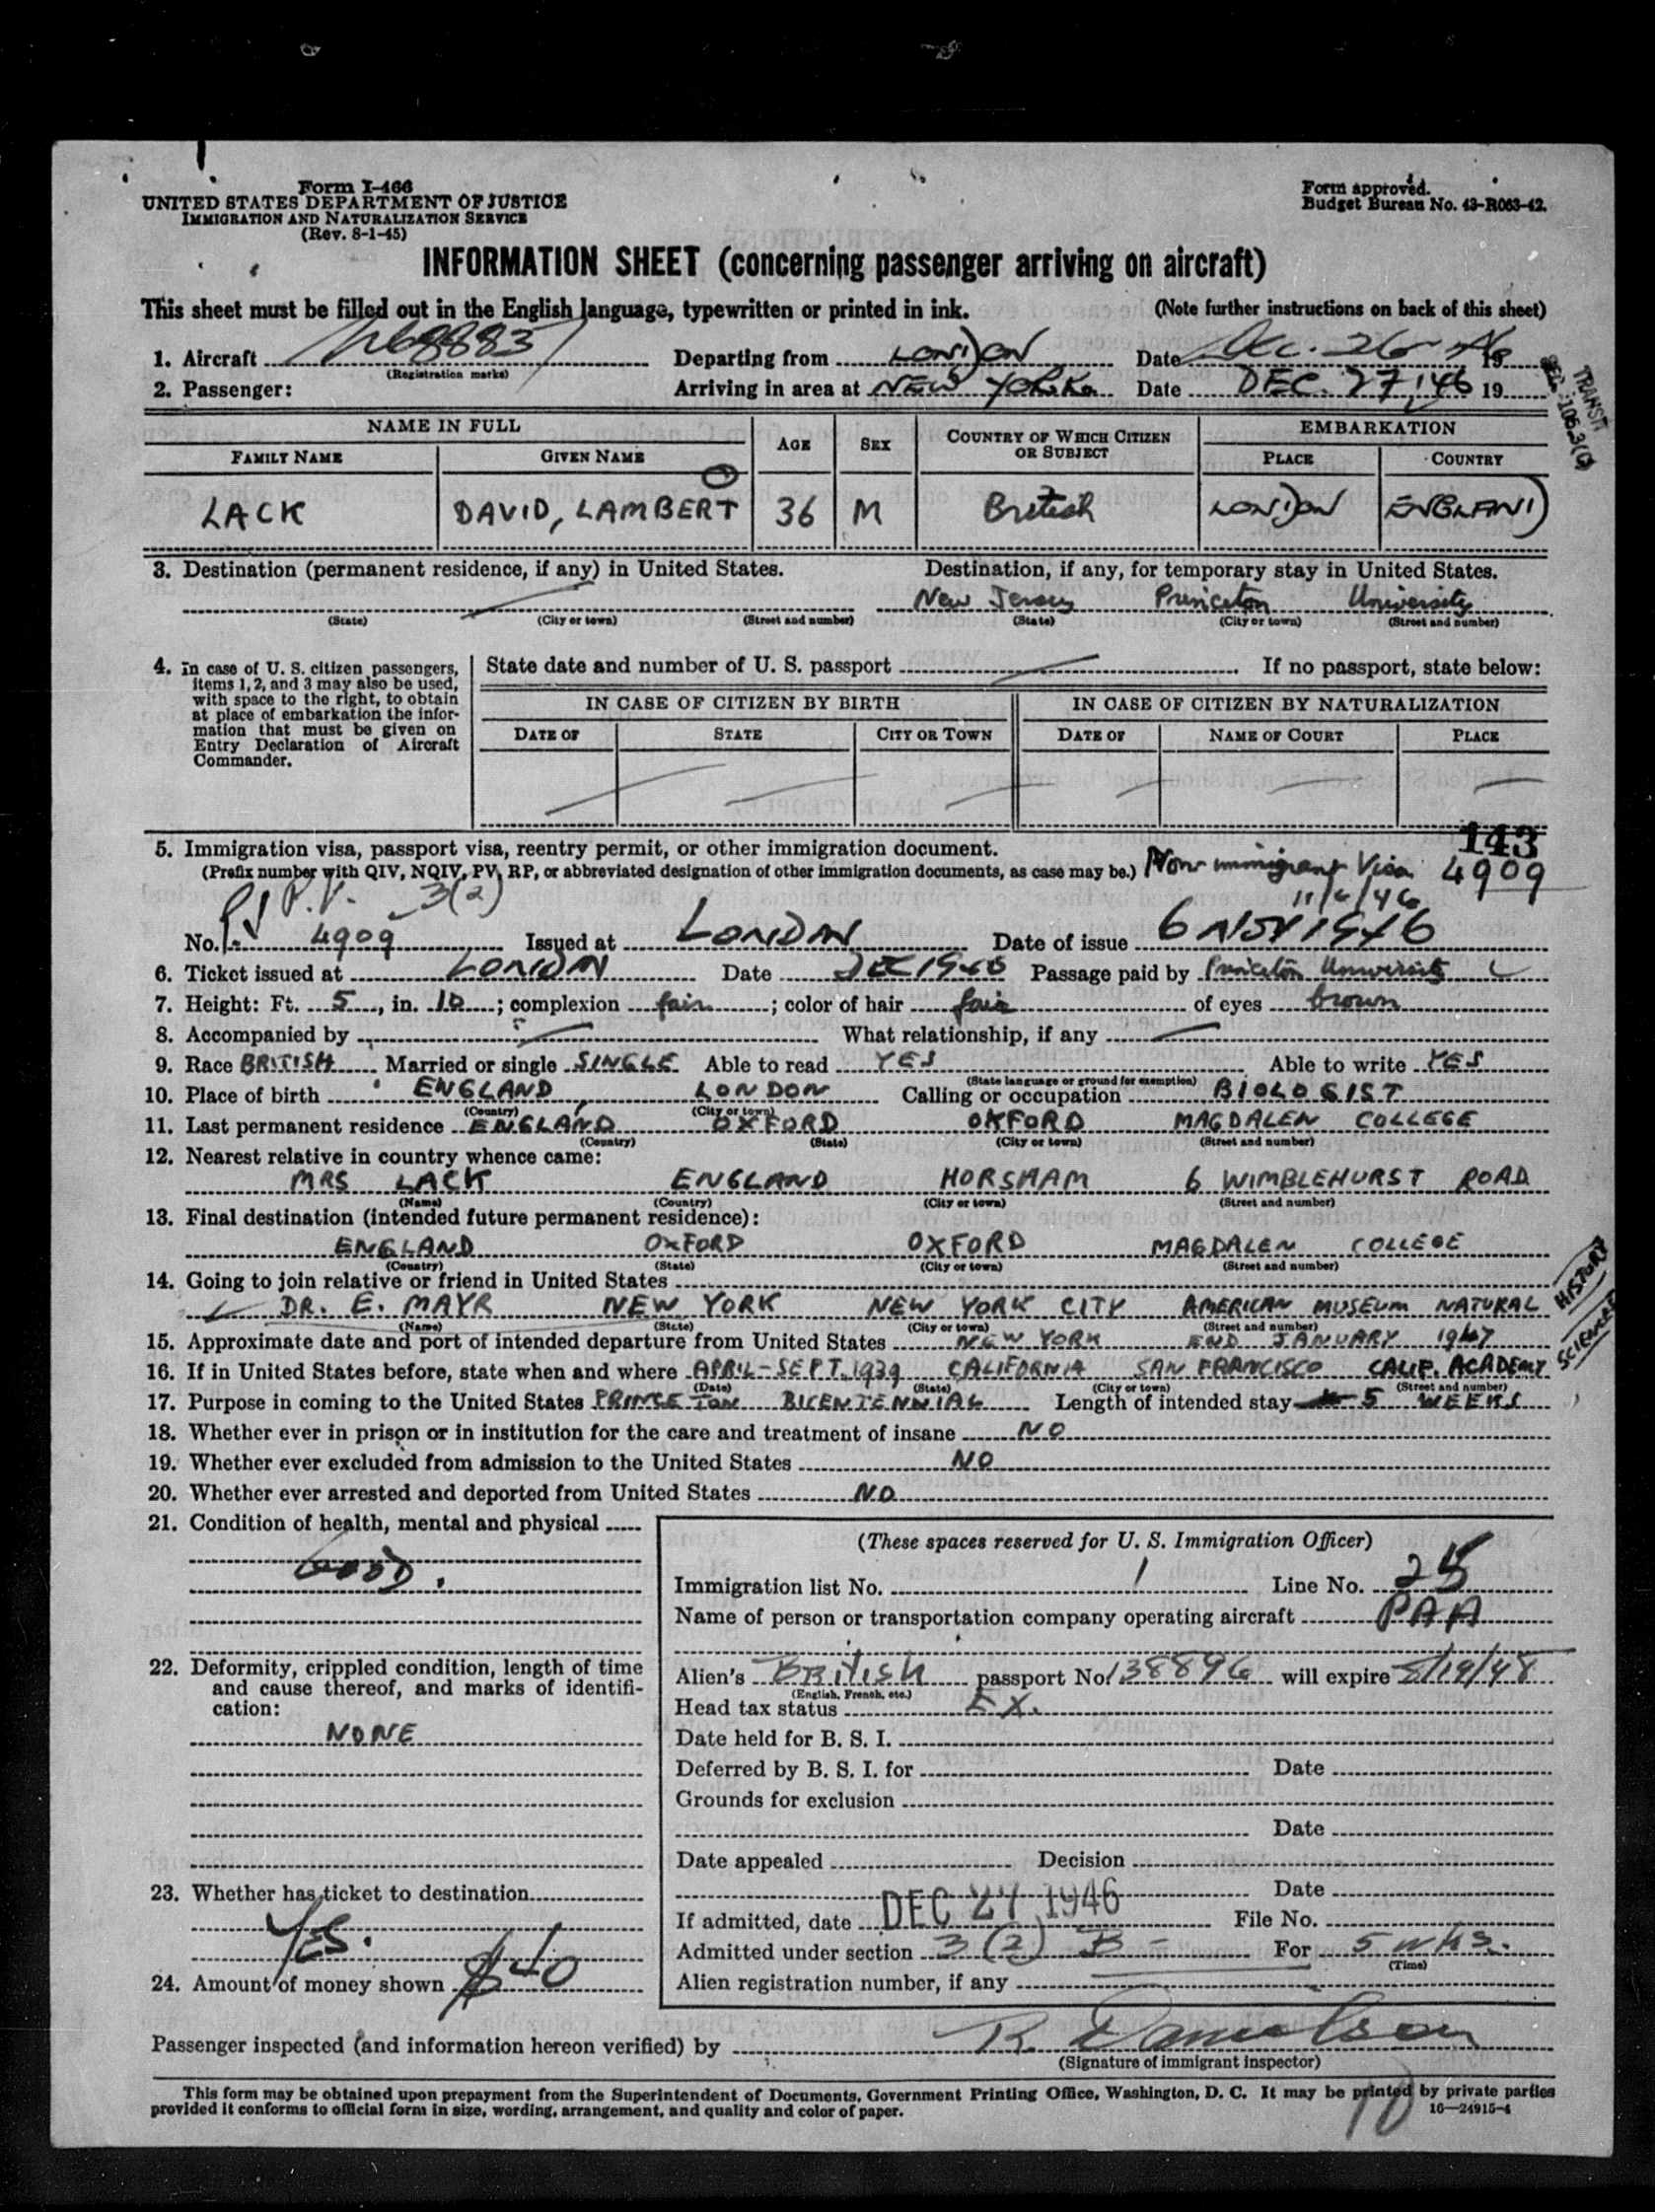 Form I-466
UNITED STATES DEPARTMENT OF JUSTICE
IMMIGRATION AND NATURALIZATION SERVICE
(Rev. 8-1-45)
Form approved.
Budget Bureau No. 43-R063-42.
INFORMATION SHEET (concerning passenger arriving on aircraft)
This sheet must be filled out in the English language, typewritten or printed in ink. (Note further instructions on back of this sheet)
1. Aircraft Departing from LONDON Date Dec. 26 46 19
(Registration marks)
2. Passenger: Arriving in area at NEW YORK Date DEC. 27, 46 19
TRANSIT
NAME IN FULL AGE SEX COUNTRY OF WHICH CITIZEN OR SUBJECT EMBARKATION
FAMILY NAME GIVEN NAME PLACE COUNTRY
LACK DAVID, LAMBERT 36 M British LONDON ENGLAND
3. Destination (permanent residence, if any) in United States. Destination, if any, for temporary stay in United States.
New Jersey Princeton University
(State) (City or town) (Street and number) (State) (City or town) (Street and number)
4. In case of U. S. citizen passengers, items 1, 2, and 3 may also be used, with space to the right, to obtain at place of embarkation the information that must be given on Entry Declaration of Aircraft Commander.
State date and number of U. S. passport If no passport, state below:
IN CASE OF CITIZEN BY BIRTH IN CASE OF CITIZEN BY NATURALIZATION
DATE OF STATE CITY OR TOWN DATE OF NAME OF COURT PLACE
143
5. Immigration visa, passport visa, reentry permit, or other immigration document.
(Prefix number with QIV, NQIV, PV, RP, or abbreviated designation of other immigration documents, as case may be.) Non-immigrant Visa 4909
P.V. 3(2) 11/6/46
No. 4909 Issued at LONDON Date of issue 6 NOV 1946
6. Ticket issued at LONDON Date DEC 1946 Passage paid by Princeton University
7. Height: Ft. 5, in. 10; complexion fair; color of hair fair of eyes brown
8. Accompanied by What relationship, if any
9. Race BRITISH Married or single SINGLE Able to read YES Able to write YES
(State language or ground for exemption)
10. Place of birth ENGLAND LONDON Calling or occupation BIOLOGIST
(Country) (City or town)
11. Last permanent residence ENGLAND OXFORD OXFORD MAGDALEN COLLEGE
(Country) (State) (City or town) (Street and number)
12. Nearest relative in country whence came:
MRS LACK ENGLAND HORSHAM 6 WIMBLEHURST ROAD
(Name) (Country) (City or town) (Street and number)
13. Final destination (intended future permanent residence):
ENGLAND OXFORD OXFORD MAGDALEN COLLEGE
(Country) (State) (City or town) (Street and number)
14. Going to join relative or friend in United States
DR. E. MAYR NEW YORK NEW YORK CITY AMERICAN MUSEUM NATURAL HISTORY
(Name) (State) (City or town) (Street and number)
15. Approximate date and port of intended departure from United States NEW YORK END JANUARY 1947
16. If in United States before, state when and where APRIL-SEPT. 1939 CALIFORNIA SAN FRANCISCO CALIF. ACADEMY SCIENCES
(Date) (State) (City or town) (Street and number)
17. Purpose in coming to the United States PRINCETON BICENTENNIAL Length of intended stay 5 WEEKS
18. Whether ever in prison or in institution for the care and treatment of insane NO
19. Whether ever excluded from admission to the United States NO
20. Whether ever arrested and deported from United States NO
21. Condition of health, mental and physical
GOOD.
22. Deformity, crippled condition, length of time and cause thereof, and marks of identification:
NONE
23. Whether has ticket to destination
YES.
24. Amount of money shown $40
(These spaces reserved for U. S. Immigration Officer)
Immigration list No. 1 Line No. 25
Name of person or transportation company operating aircraft PAA
Alien's British passport No. 138896 will expire 8/19/48
(English, French, etc.)
Head tax status EX.
Date held for B. S. I.
Deferred by B. S. I. for Date
Grounds for exclusion
Date
Date appealed Decision
Date
If admitted, date DEC 27 1946 File No.
Admitted under section 3(2) B - For 5 wks.
(Time)
Alien registration number, if any
Passenger inspected (and information hereon verified) by R. Danielson
(Signature of immigrant inspector)
This form may be obtained upon prepayment from the Superintendent of Documents, Government Printing Office, Washington, D. C. It may be printed by private parties
provided it conforms to official form in size, wording, arrangement, and quality and color of paper. 16—24915-4